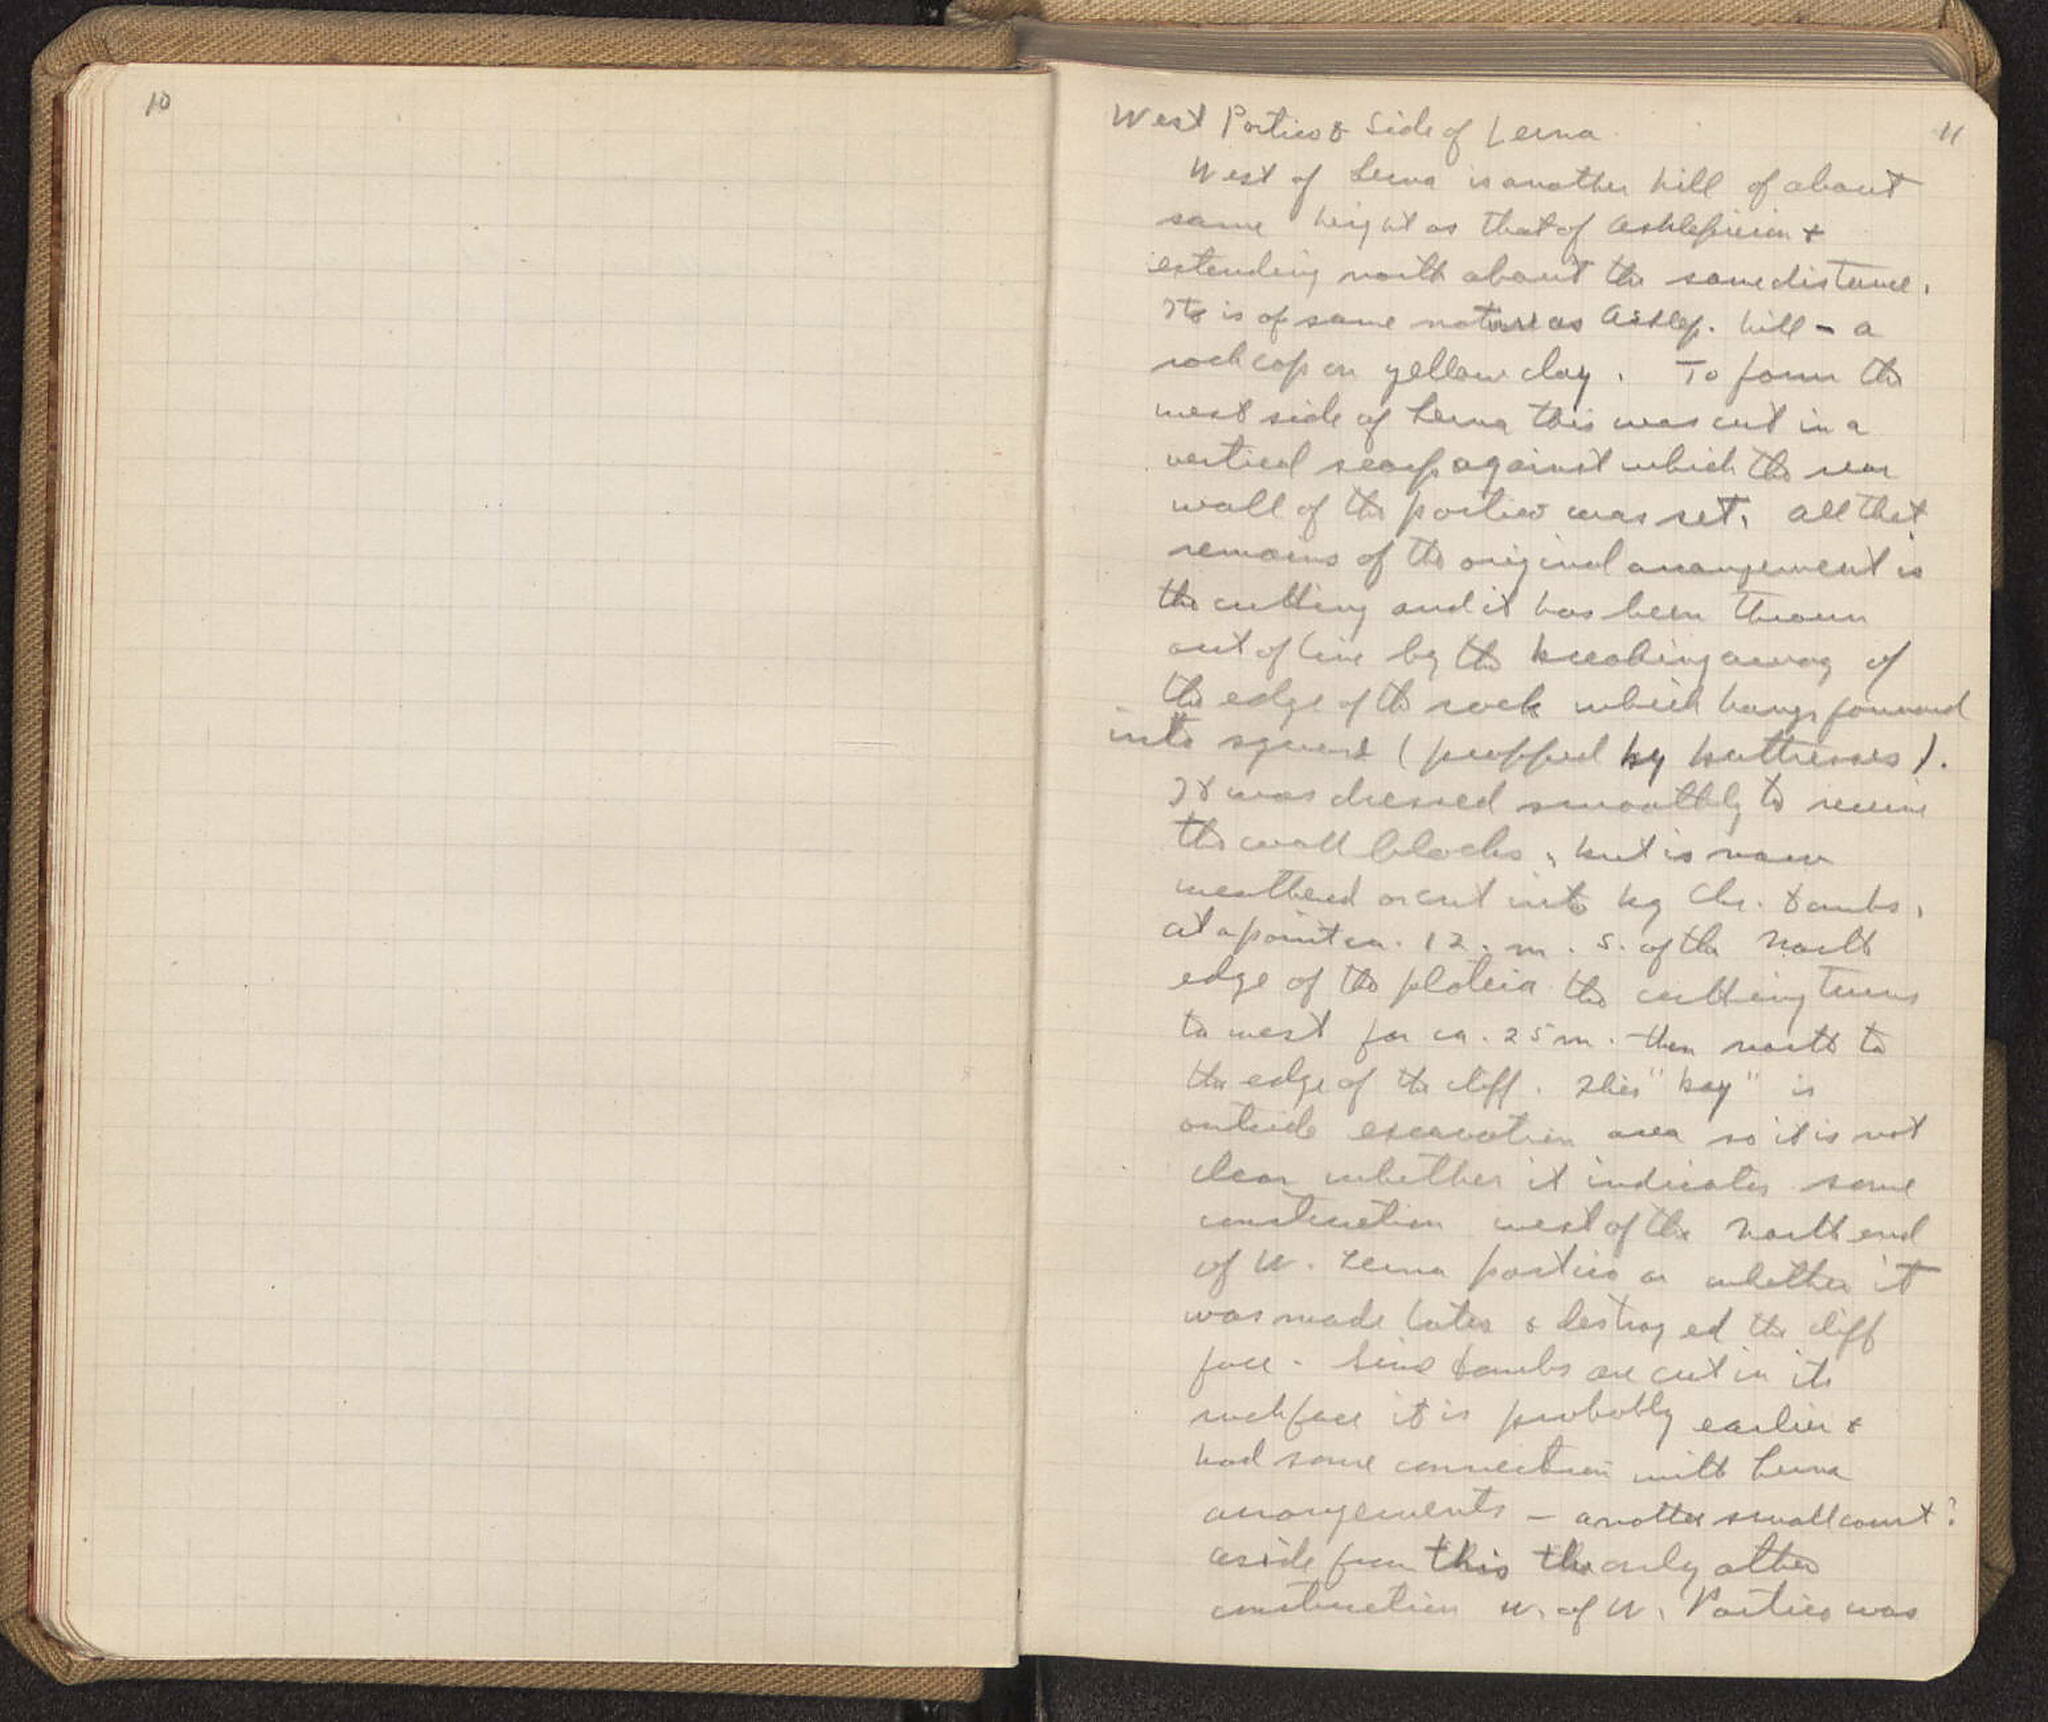 10
11
West Portico & Side of Lerna
West of Lerna is another hill of about
same height as that of Asklepieion &
extending north about the same distance.
It is of same nature as Asklep. hill – a
rock cap on yellow clay. To form the
west side of Lerna this was cut in a
vertical scarp against which the rear
wall of the portico was set. All that
remains of the original arrangement is
the cutting and it has been thrown
out of line by the breaking away of
the edge of the rock which hangs forward
into square (propped by buttresses).
It was dressed smoothly to receive
the wall blocks, but is now
weathered or cut into by Chr. tombs.
At a point ca. 12. m. S. of the North
edge of the plateia the cutting turns
to west for ca. 25 m. then north to
the edge of the cliff. This "bay" is
outside excavation area so it is not
clear whether it indicates some
construction west of the North end
of W. Lerna portico or whether it
was made later & destroyed the cliff
face. Since tombs are cut in its
rock face it is probably earlier &
had some connection with Lerna
arrangements – another small court?
Aside from this the only other
construction W. of W. Portico was